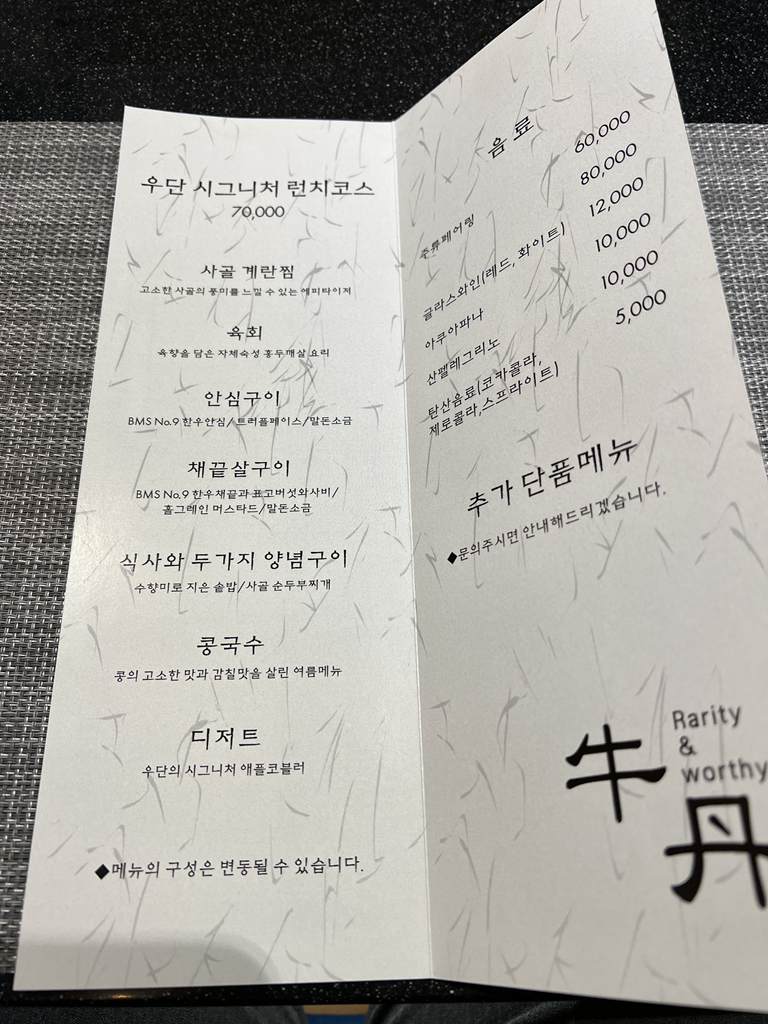 우단 시그니처 런치코스
70,000
사골 계란찜
고소한 사골의 풍미를 느낄 수 있는 에피타이저
육회
육향을 담은 자체숙성 홍두깨살 요리
안심구이
BMS No.9 한우안심/트러플페이스/말돈소금
채끝살구이
BMS No.9 한우채끝과 표고버섯와사비/
홀그레인 머스타드/말돈소금
식사와 두가지 양념구이
수향미로 지은 솥밥/사골 순두부찌개
콩국수
콩의 고소한 맛과 감칠맛을 살린 여름메뉴
디저트
우단의 시그니처 애플코블러
◆메뉴의 구성은 변동될 수 있습니다.
음료
60,000
80,000
주류페어링
12,000
글라스와인(레드, 화이트)
10,000
아쿠아파나
10,000
산펠레그리노
5,000
탄산음료(코카콜라,
제로콜라,스프라이트)
추가 단품메뉴
◆문의주시면 안내해드리겠습니다.
牛丹
Rarity
&
worthy